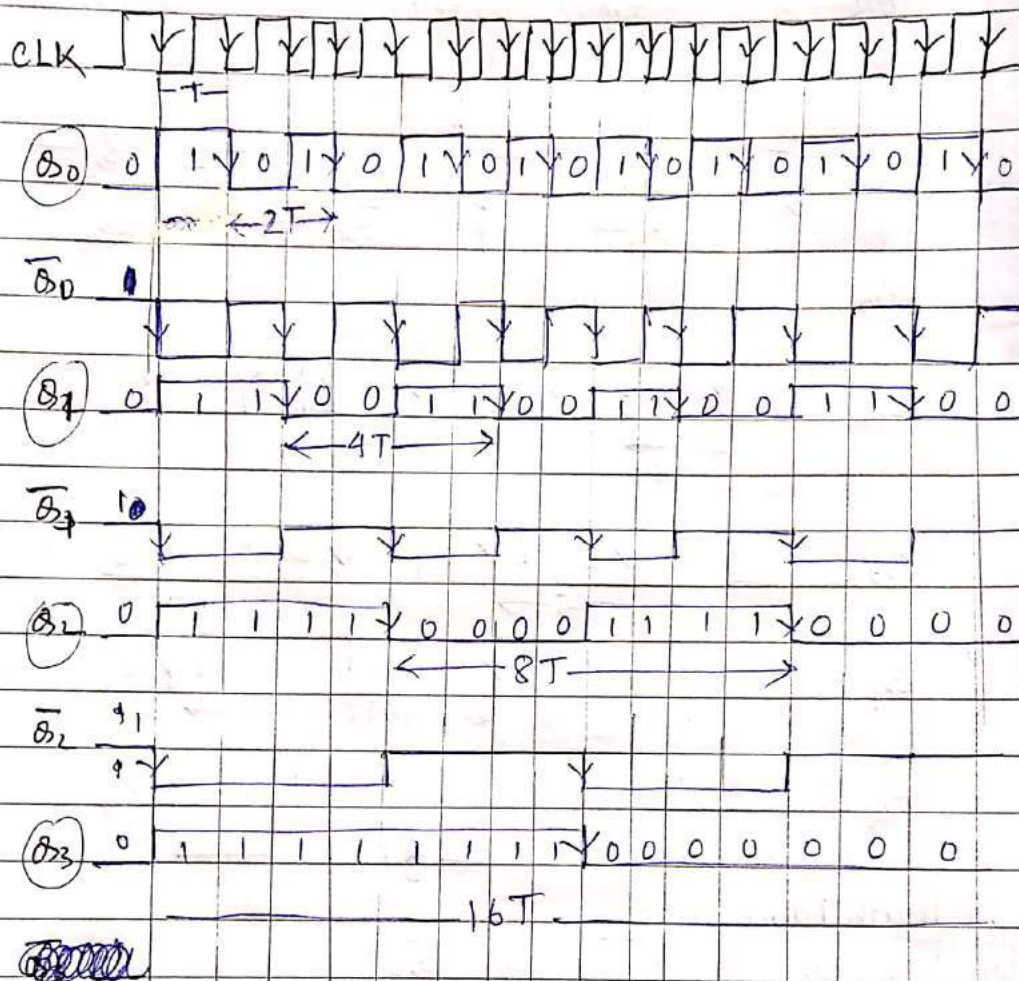 CLK
T
Q0 0 1 0 1 0 1 0 1 0 1 0 1 0 1 0 1 0
2T
Q̅0
Q1 0 1 1 0 0 1 1 0 0 1 1 0 0 1 1 0 0
4T
Q̅1 1
Q2 0 1 1 1 1 0 0 0 0 1 1 1 1 0 0 0 0
8T
Q̅2 1
Q3 0 1 1 1 1 1 1 1 1 0 0 0 0 0 0 0
16T